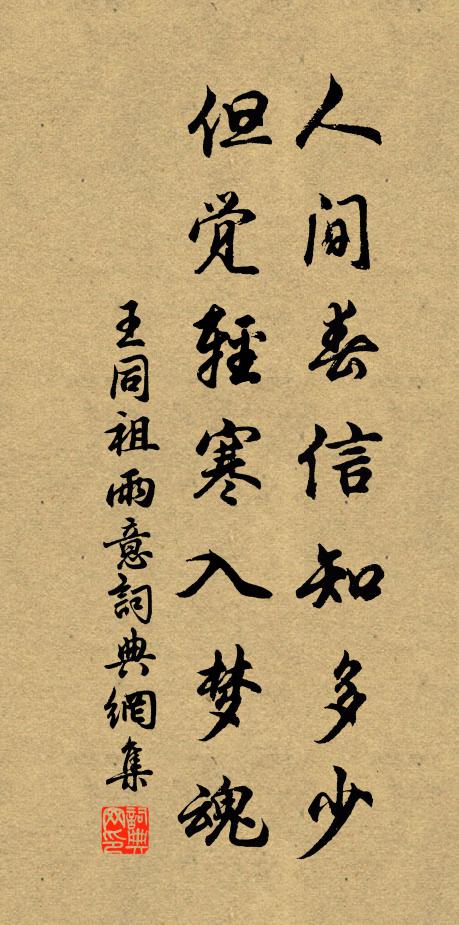 人间春信知多少
但觉輕寒入梦魂
王同祖雨意詞典網集
詞典网印